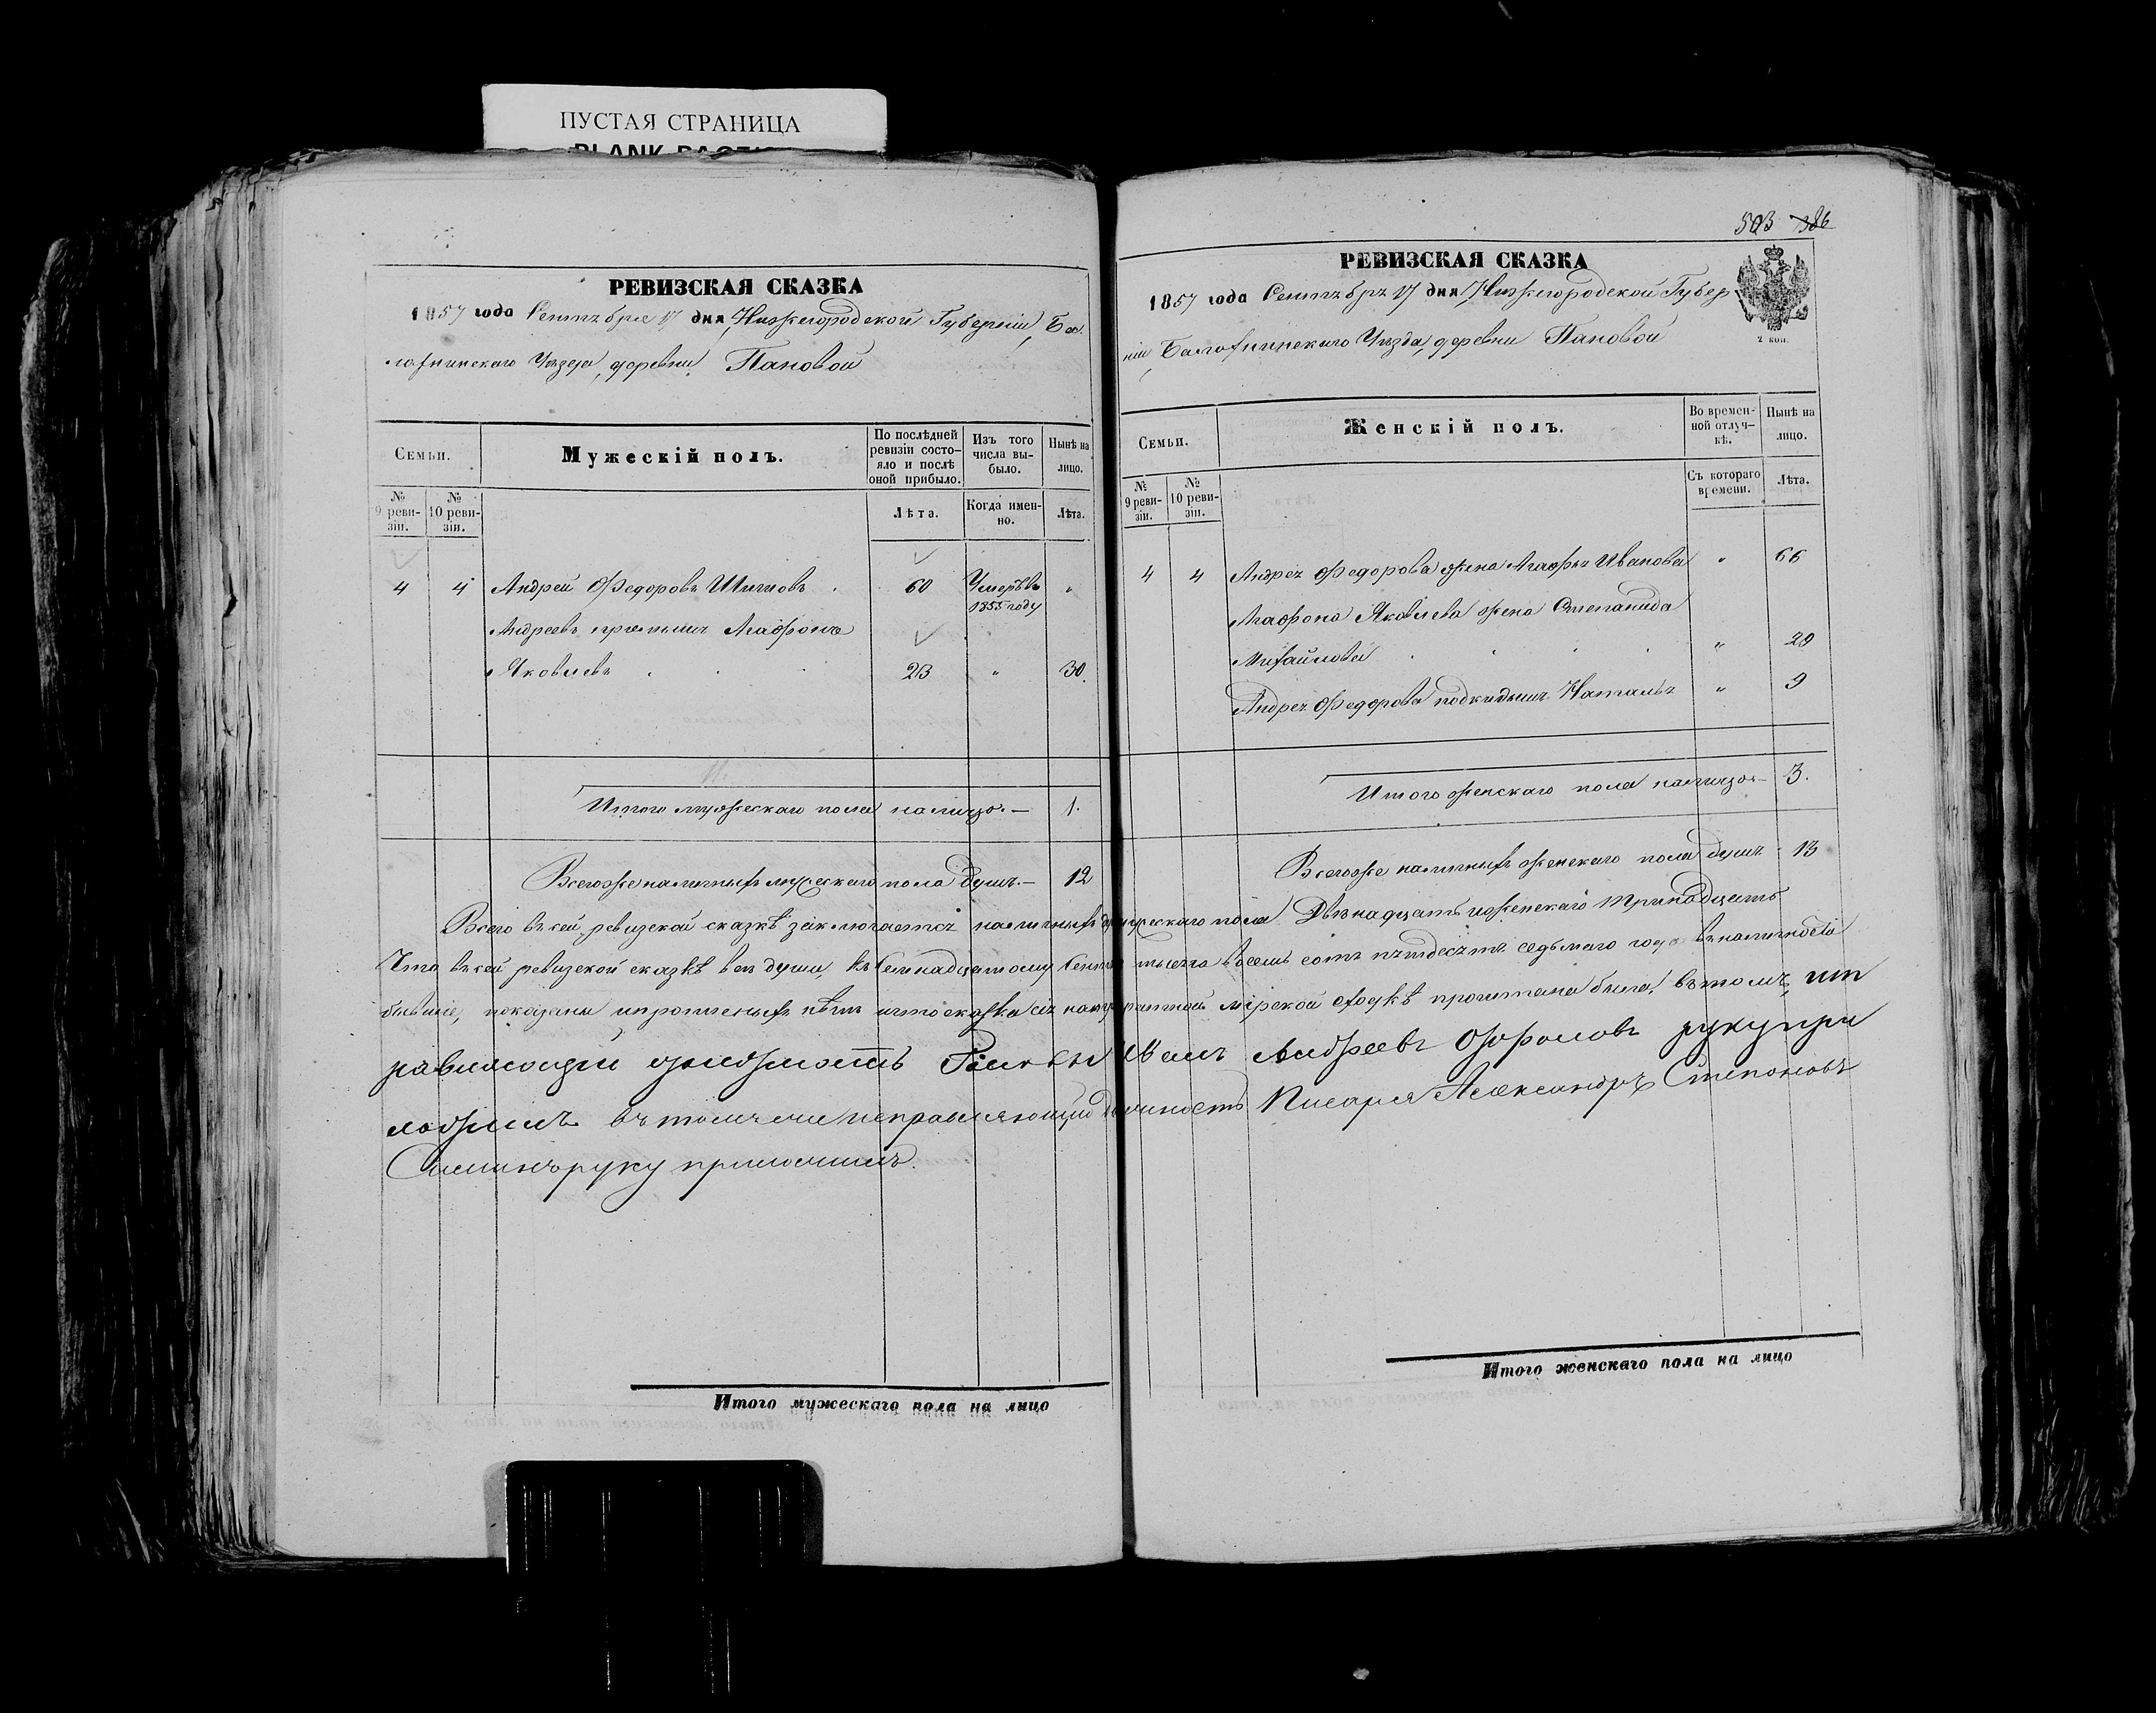 ПУСТАЯ СТРАНИЦА
BLANK
РЕВИЗСКАЯ СКАЗКА
1857 года Сентября 17 дня Нижегородской Губерніи, Ба-
лахнинскаго Уезда, деревни Пановой
Семьи.
Мужескій полъ.
По послѣдней ревизіи состо-
яло и послѣ оной прибыло.
Изъ того числа вы-
было.
Нынѣ на лицо.
№ 9 реви-
зіи.
№ 10 реви-
зіи.
Лѣта.
Когда имен-
но.
Лѣта.
4 4 Андрей Федоровъ 60 Умеръ въ "
1855 году
Андреевъ пріемышъ Агафонъ
Яковлевъ 23 " 30.
Итого мужескаго пола налицо.— 1.
Всегоже наличныхъ мужескаго пола душъ.— 12
503 386
РЕВИЗСКАЯ СКАЗКА
1857 года Сентября 17 дня Нижегородской Губер-
ніи, Балахнинскаго Уезда, деревни Пановой
2 коп.
Семьи.
Женскій полъ.
Во времен-
ной отлуч-
кѣ.
Нынѣ на лицо.
№ 9 реви-
зіи.
№ 10 реви-
зіи.
Съ котораго времени.
Лѣта.
4 4 Андрея Федорова жена Агафья Иванова " 66
Агафона Яковлева жена Степанида
Михайлова " 29
Андрея Федорова подкидышъ Наталья " 9
Итого женскаго пола налицо— 3.
Всегоже наличныхъ женскаго пола душъ 13
Всего въ сей ревизской сказкѣ заключается наличныхъ мужескаго пола Двѣнадцать и женскаго тринадцать
Что въ сей ревизской сказкѣ всѣ души, къ Семнадцатому тысяча восемь сотъ пятдесятъ седьмаго года въ наличности
бывшіе, показаны и прописныхъ нѣтъ и что сказка сія на мірской сходкѣ прочитана была, въ томъ,
должность Иванъ Андреевъ руку при
ложилъ въ томъ исправляющій должность Писаря Александръ Степановъ
руку приложилъ.
Итого мужескаго пола на лицо
Итого женскаго пола на лицо